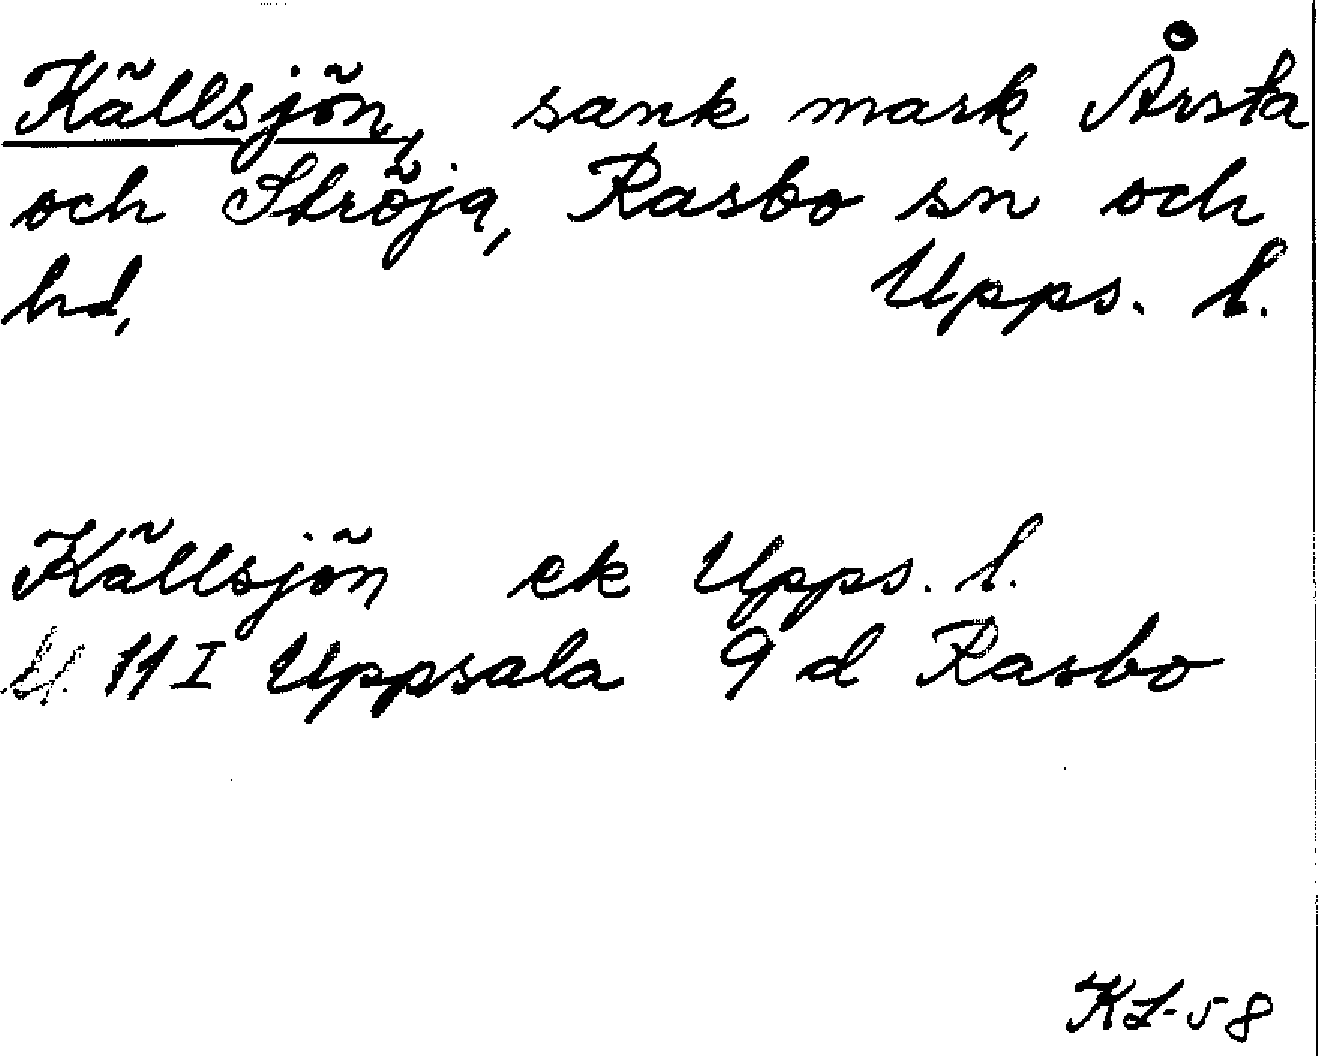 Källsjön, sank mark, Årsta
och Ströja, Rasbo sn och
hd, Upps. l.
Källsjön ek Upps. l.
bl. 11 I Uppsala 9 d Rasbo
KL-58